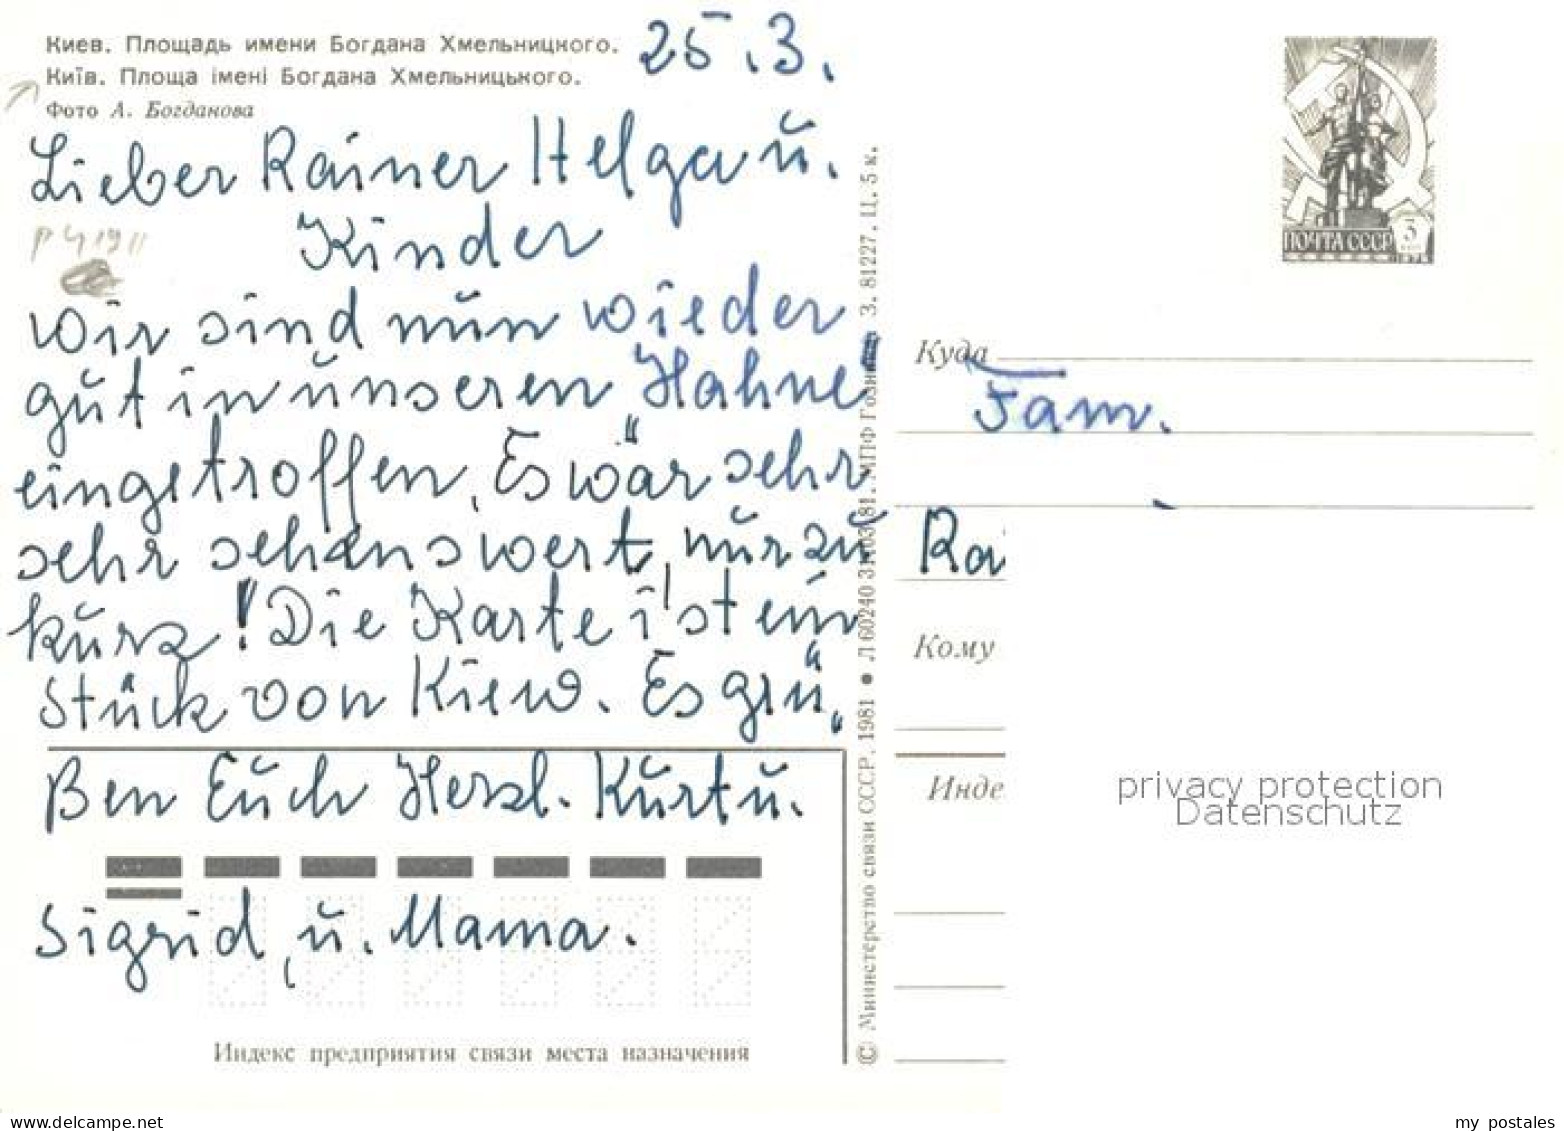 Киев. Площадь имени Богдана Хмельницкого.
Київ. Площа імені Богдана Хмельницького.
Фото А. Богданова
25.3.
Lieber Rainer Helga u.
Kinder
wir sind nun wieder
gut in unseren Hahne"
eingetroffen. Es wär sehr
sehr sehenswert, nur zu
kurz! Die Karte ist ein
Stück von Kiew. Es grü„
Ben Euch Herzl. Kurt u.
Sigrid, u. Mama.
Индекс предприятия связи места назначения
© Министерство связи СССР. 1981 • Л 60240 31/03/81. МПФ Гознака З. 81227. Ц. 5 к.
ПОЧТА СССР 3
Куда
Fam.
Ra
Кому
Инде
privacy protection
Datenschutz
www.delcampe.net
my postales